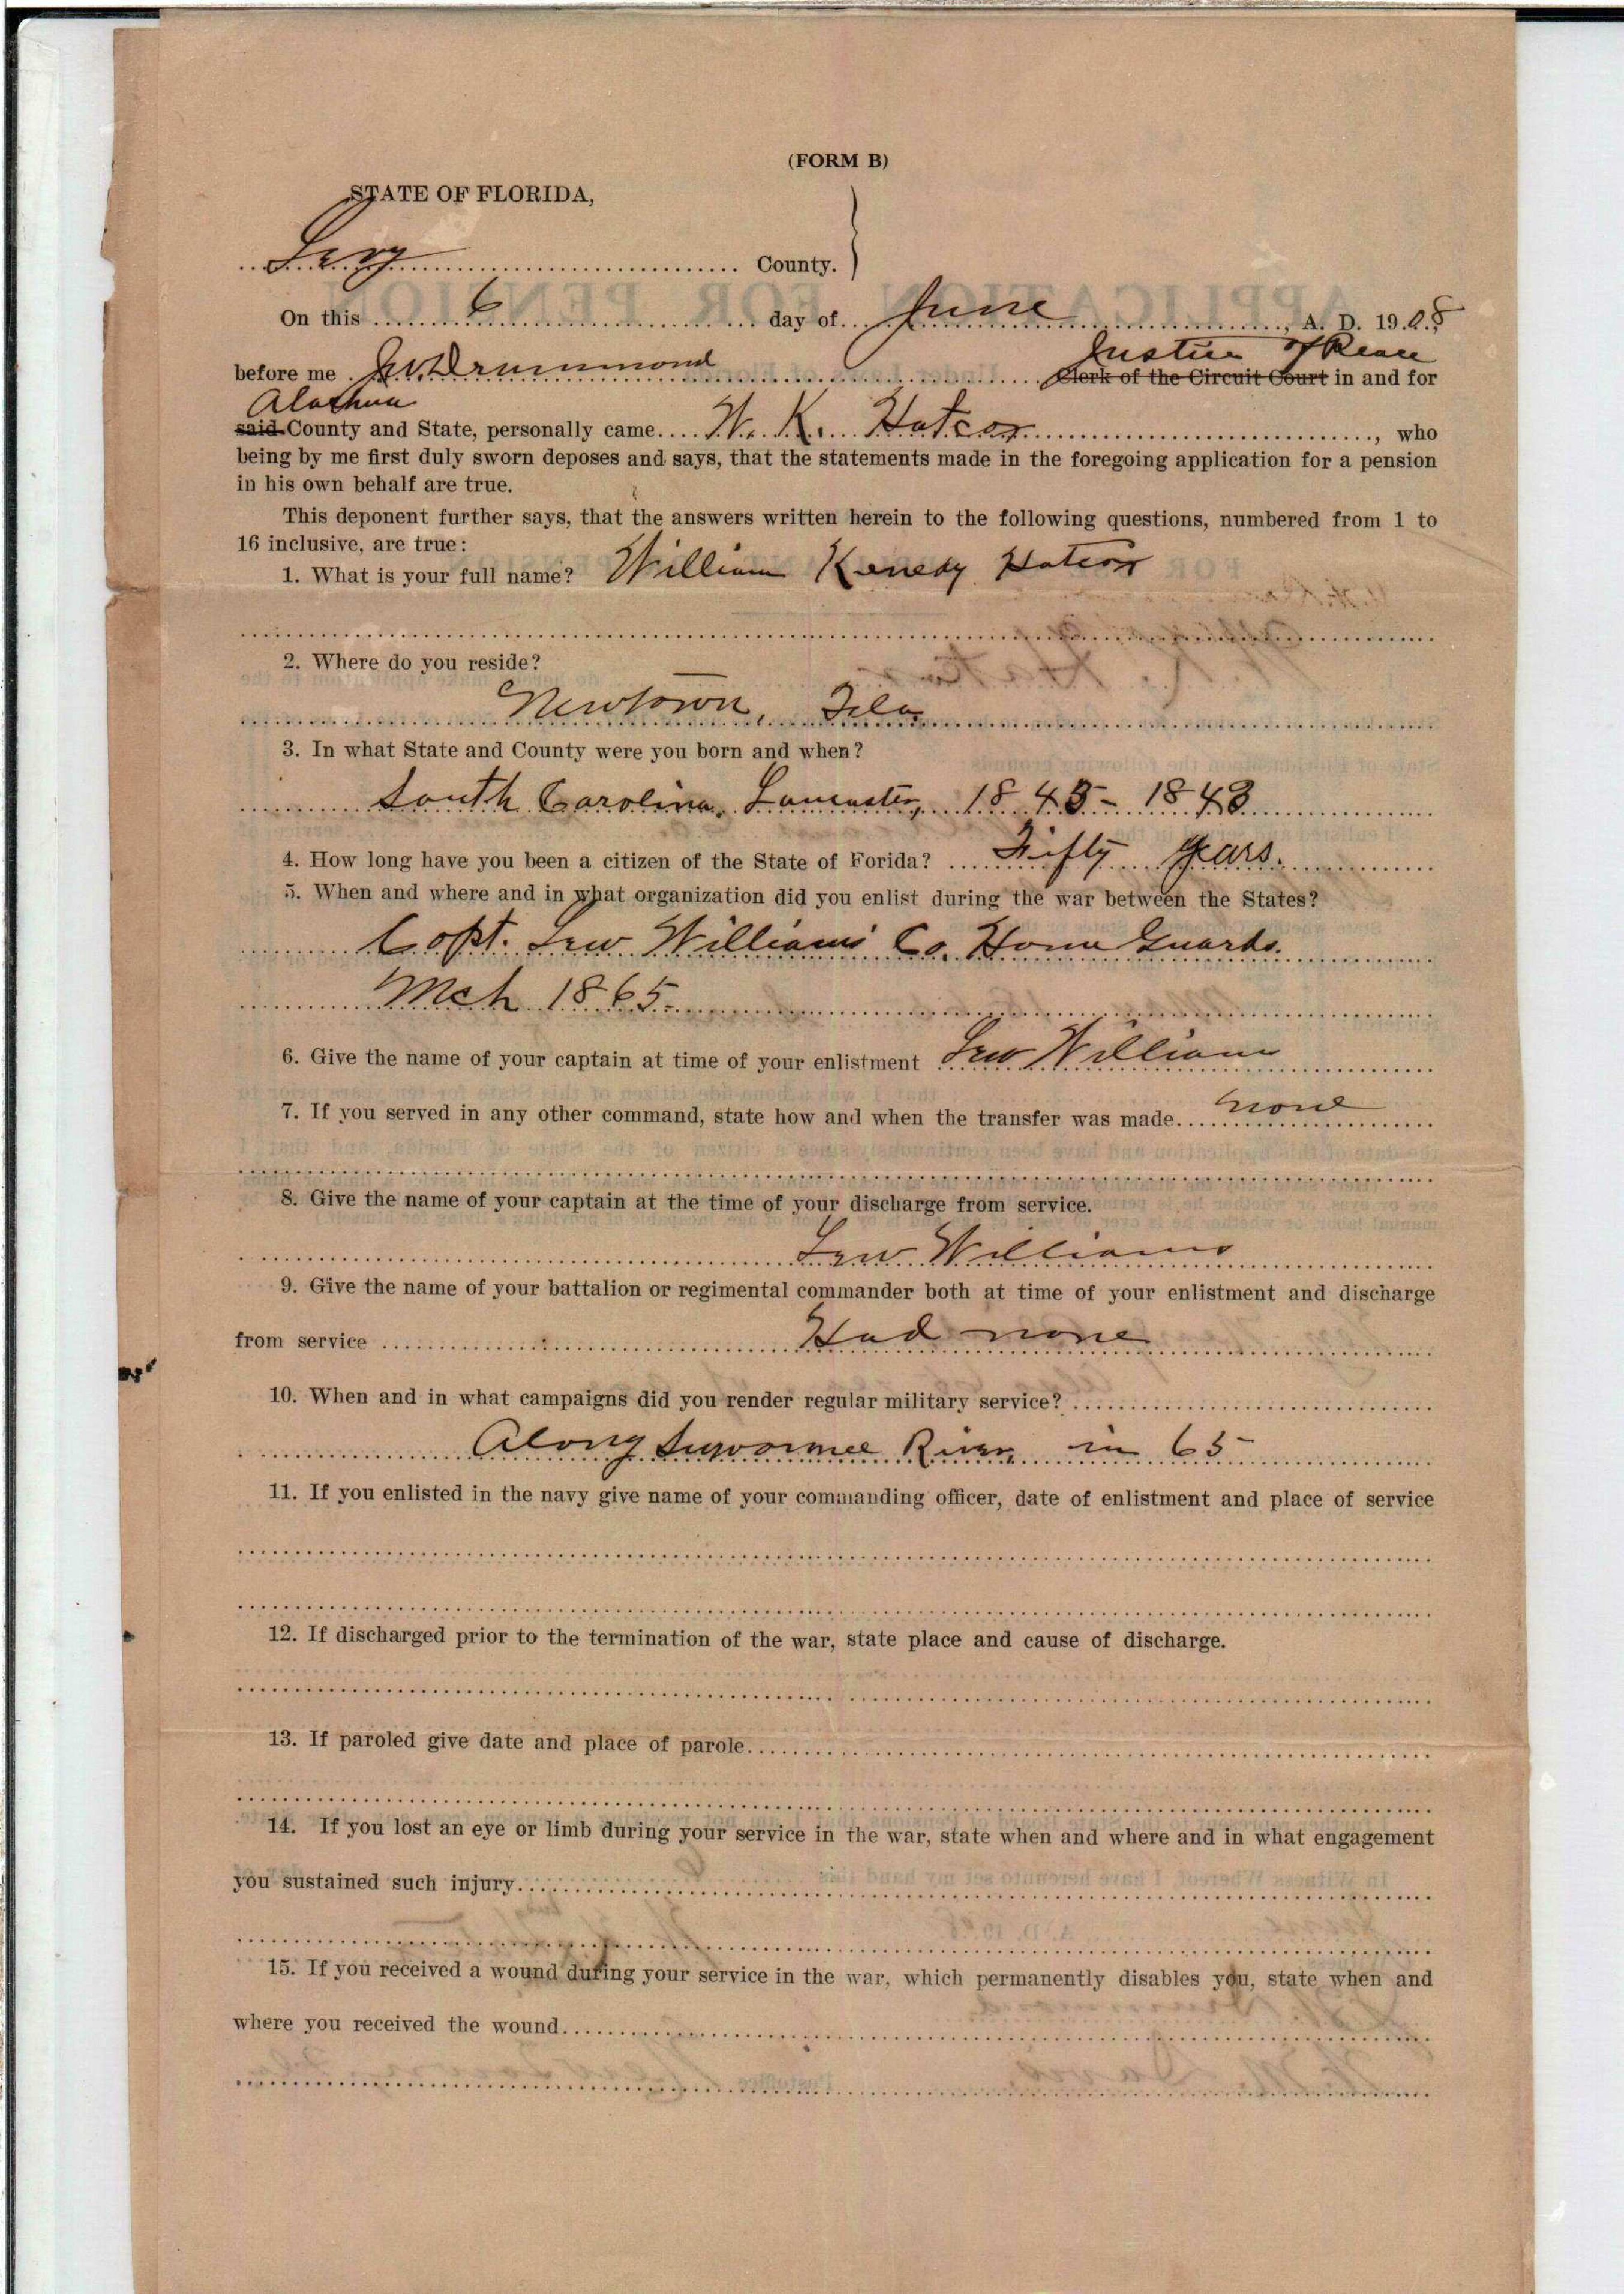 (FORM B)
STATE OF FLORIDA,
Levy County.
On this 6 day of June, A. D. 1908
Justice of Peace
before me Drummond Clerk of the Circuit Court in and for
Alachua
said County and State, personally came W. K. Hatcox, who
being by me first duly sworn deposes and says, that the statements made in the foregoing application for a pension
in his own behalf are true.
This deponent further says, that the answers written herein to the following questions, numbered from 1 to
16 inclusive, are true:
1. What is your full name? William Kenedy Hatcox
2. Where do you reside?
Newtown, Fla
3. In what State and County were you born and when?
South Carolina, Lancaster, 1843 - 1843
4. How long have you been a citizen of the State of Forida? Fifty years.
5. When and where and in what organization did you enlist during the war between the States?
Capt. Lew Williams' Co. Home Guards.
Mch 1865.
6. Give the name of your captain at time of your enlistment Lew Williams
7. If you served in any other command, state how and when the transfer was made. none
8. Give the name of your captain at the time of your discharge from service.
Lew Williams
9. Give the name of your battalion or regimental commander both at time of your enlistment and discharge
from service Had none
10. When and in what campaigns did you render regular military service?
Along Suwannee River in 65
11. If you enlisted in the navy give name of your commanding officer, date of enlistment and place of service
12. If discharged prior to the termination of the war, state place and cause of discharge.
13. If paroled give date and place of parole.
14. If you lost an eye or limb during your service in the war, state when and where and in what engagement
you sustained such injury.
15. If you received a wound during your service in the war, which permanently disables you, state when and
where you received the wound.